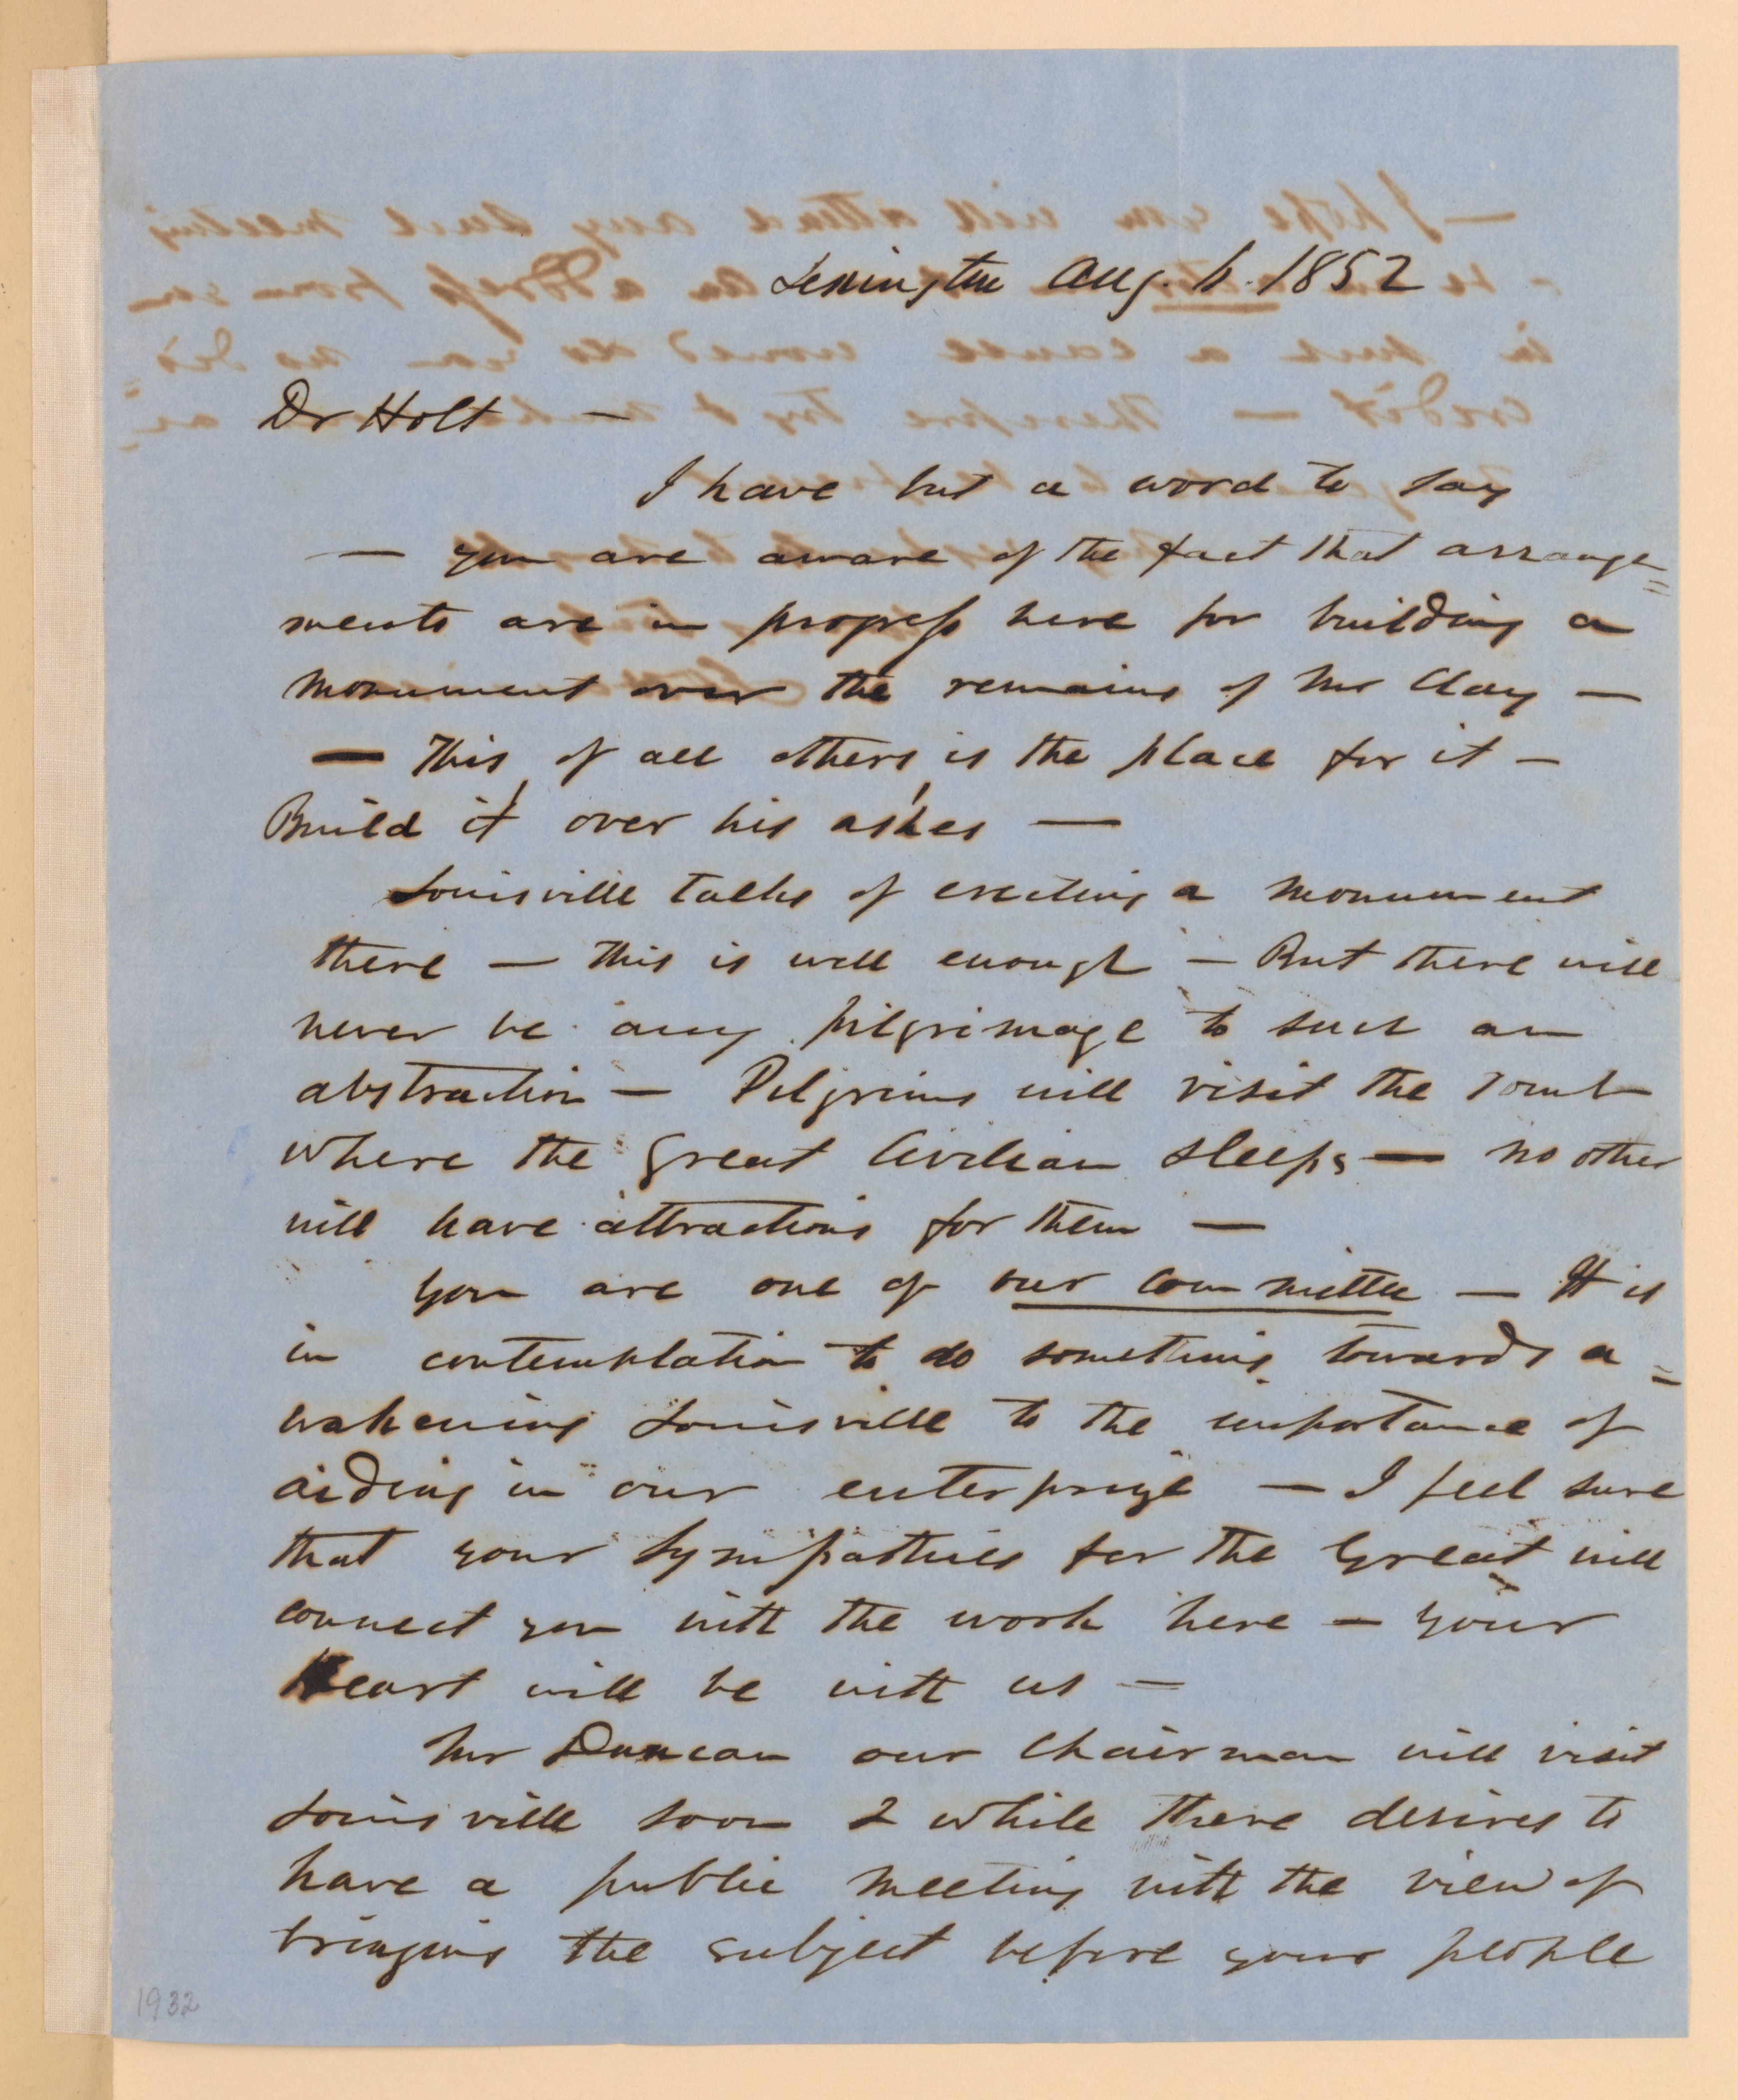 Lexington Aug. 6. 1852
Dr Holt —
I have but a word to say
— you are aware of the fact that arrange=
ments are in progress here for building a
monument over the remains of Mr Clay —
— This, of all others, is the place for it —
Build it over his ashes —
Louisville talks of erecting a monument
there — This is well enough — But there will
never be any pilgrimage to such an
abstraction — Pilgrims will visit the Tomb
where the great Civilian sleeps — no other
will have attractions for them —
You are one of our committee — It is
in contemplation to do something towards a=
wakening Louisville to the importance of
aiding in our enterprize — I feel sure
that your sympathies for the Great will
connect you with the work here — your
Heart will be with us —
Mr Duncan our Chairman will visit
Louisville soon & while there desires to
have a public meeting with the view of
bringing the subject before your people
1932